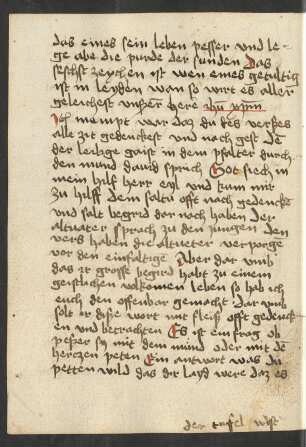 das eines sein leben pesser und le-
ge abe die purde der sunden Das
sechst zeychen ist wen eines getultig
ist in leyden wan so wirt es aller
geleichest unßer here
Ich du des verßes
alle zit gedenckest und nach
der heilige gaist in dem psalter durch
den mund david sprich Got siech in
mein hilf herr eyl und kum mir
zu hilff dem soltu offt nach gedencke
und solt begird dar nach haben der
altuater sprach zu den jungen den
vers haben die altueter verporge
vor den einfaltige Aber dar umb
das ir grosse begird habt zu einem
geistlichen volkomen leben so hab ich
euch den offenbar gemacht Dar umb
solt ir diße wort mit fleiß offt gedenck
en und betrachten Es ist ein frag ob
peßer sy mit dem mund oder mit de
herczen peten Ein antwort was du
petten wild das dir layd were daz es
der teufel west